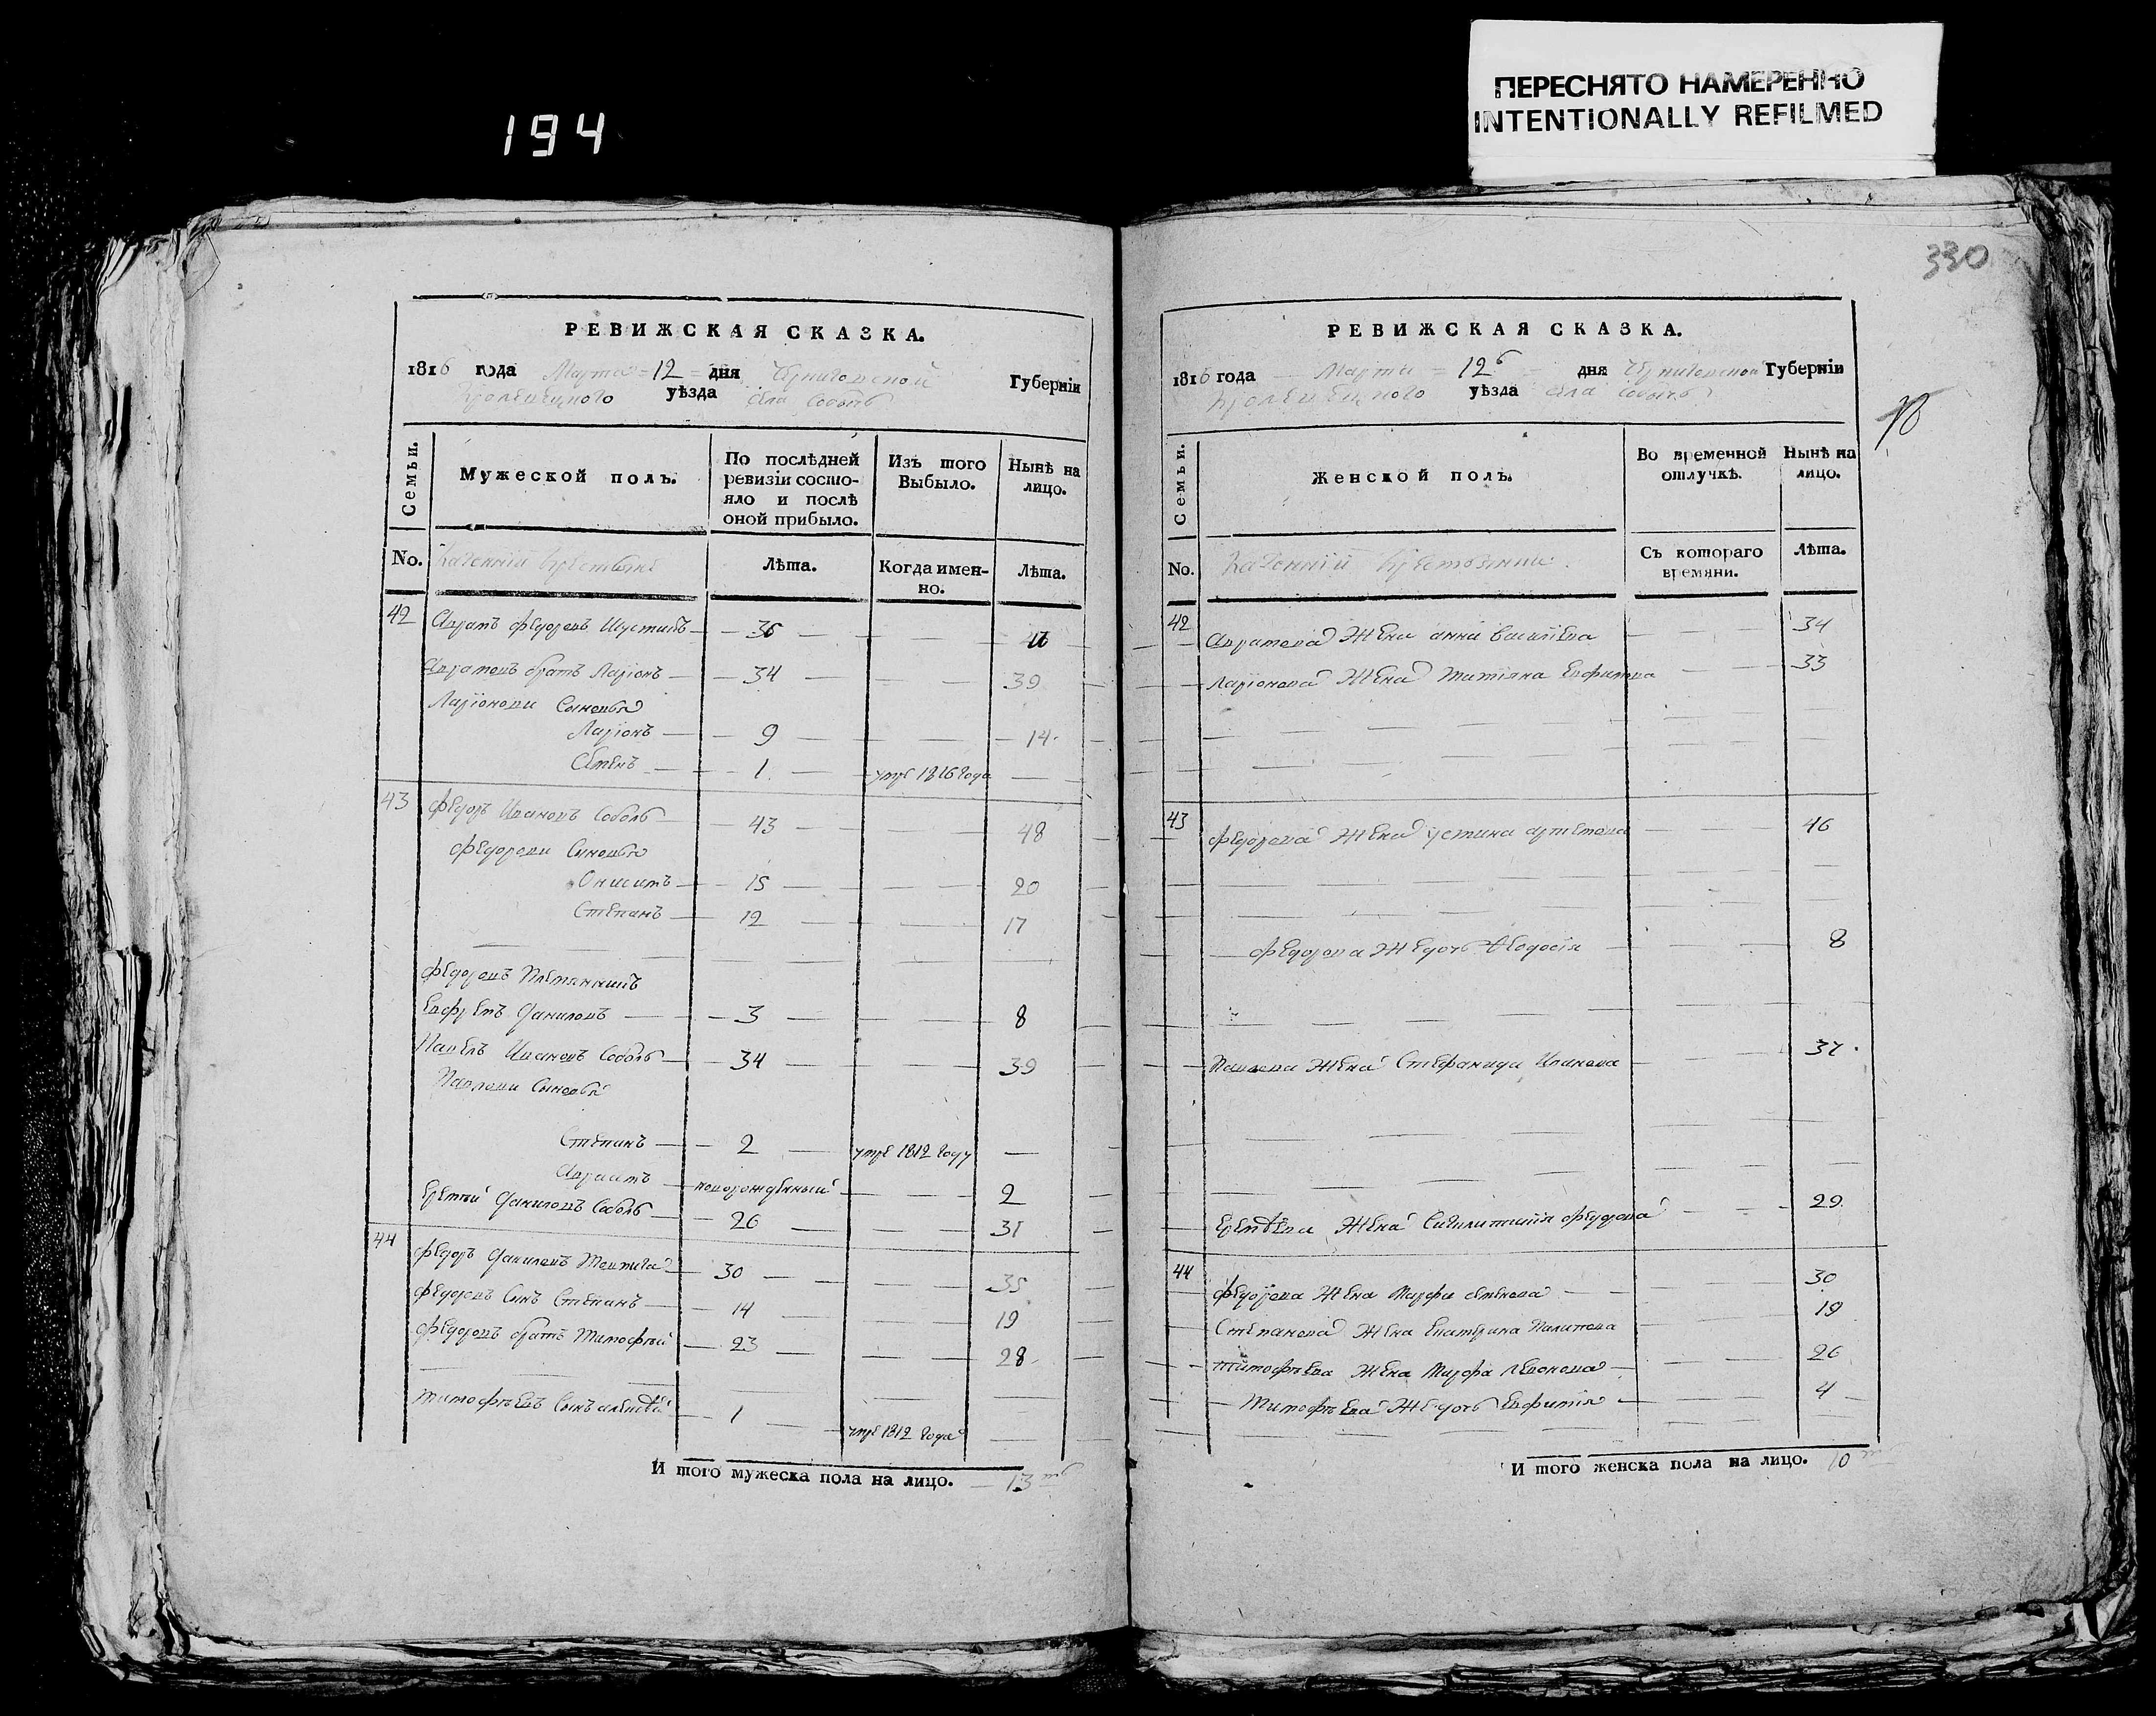 194
ПЕРЕСНЯТО НАМЕРЕННО
INTENTIONALLY REFILMED
330
РЕВИЖСКАЯ СКАЗКА.
1816 года Марта 12 дня Черниговской Губернїи
Кролевецкого уѣзда села Собычъ
Семьи. Мужеской полъ. По послѣдней ревизїи состояло и послѣ оной прибыло. Изъ того Выбыло. Нынѣ на лицо.
No. Казенній Лѣта. Когда именно. Лѣта.
42 Аврамъ Федоровъ 36
Аврамовъ братъ Ларіонъ 34 39
Ларіонови Сыновья
Ларіонъ 9 14
Семенъ 1 умре 1816 года
43 Федоръ Ивановъ Соболь 43 48
Федорови Сыновья
Онисимъ 15 20
Степанъ 12 17
Федоровъ Племянникъ
Евфремъ Даниловъ 3 8
Павелъ Ивановъ Соболь 34 39
Павлови Сыновья
Степанъ 2 умре 1812 году
Авраамъ новорожденный 2
Еремѣй Даниловъ Соболь 26 31
44 Федоръ Даниловъ 30 35
Федоровъ Сынъ Степанъ 14 19
Федоровъ братъ Тимофѣй 23 28
Тимофѣевъ Сынъ Алексѣй 1 умре 1812 года
И того мужеска пола на лицо. 13
РЕВИЖСКАЯ СКАЗКА.
1816 года Марта 12 дня Черниговской Губернїи
Кролевецкого уѣзда села Собычъ
Семьи. Женской полъ. Во временной отлучкѣ. Нынѣ на лицо.
No. Казенній Съ котораго времяни. Лѣта.
42 Аврамова Жена Анна Василіева 34
Ларіонова Жена Татіяна Евфимова 33
43 Федорова Жена Устина Артемова 46
Федорова Же дочь Ѳеодосія 8
Павлова Жена Стефанида Иванова
Еремѣева Жена Федорова 29
44 Федорова Жена Марфа Семенова 30
Степанова Жена Екатерина 19
Тимофѣева Жена Марфа Леонова 26
Тимофѣева Же дочь Евфимія 4
И того женска пола на лицо. 10